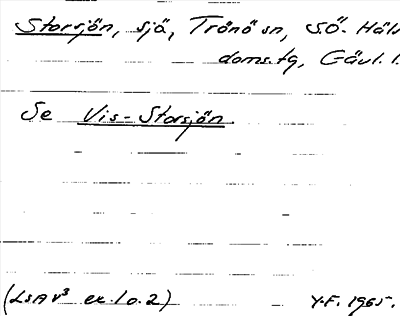 Storsjön, sjö, Trönö sn, S.Ö. Häls
doms.tg, Gävl. l.
Se Vis-Storsjön.
(LSA v³ ex. 1 o. 2) Y.F. 1965.